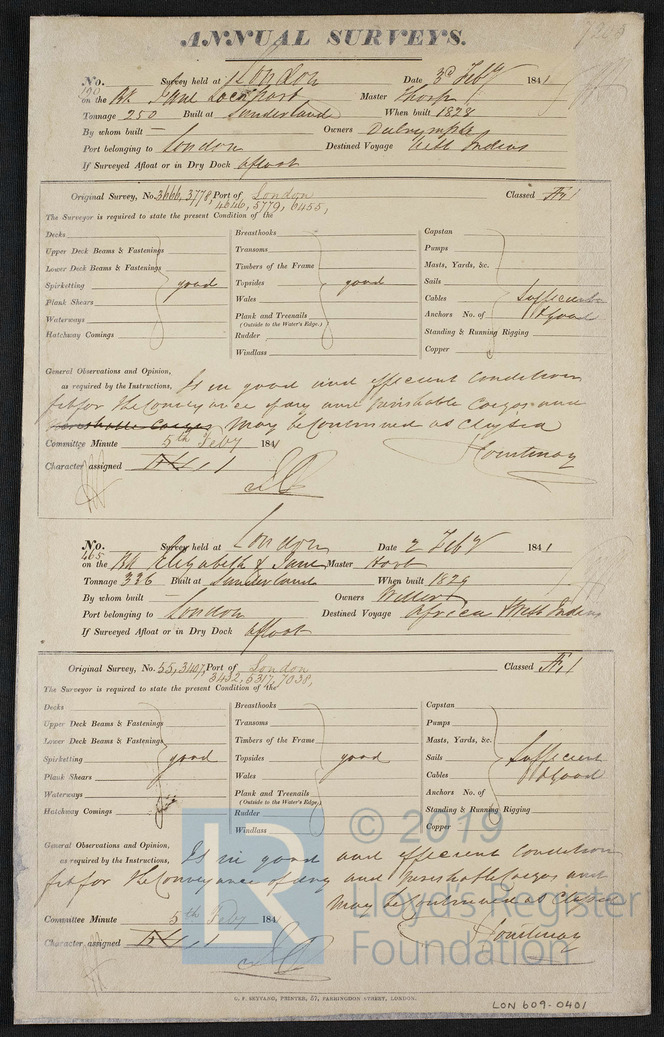 ANNUAL SURVEYS.
No. Survey held at London Date 3rd Feby 1841
190
on the Bk Jane Lockhart Master Thorp
Tonnage 250 Built at Sunderland When built 1828
By whom built — Owners Dalrymple
Port belonging to London Destined Voyage West Indies
If Surveyed Afloat or in Dry Dock afloat
Original Survey, No. 3666, 3778, Port of London Classed Æ 1
4646, 5779, 6455,
The Surveyor is required to state the present Condition of the
Decks Breasthooks Capstan
Upper Deck Beams & Fastenings Transoms Pumps
Lower Deck Beams & Fastenings Timbers of the Frame Masts, Yards, &c.
Spirketting good Topsides good Sails
Plank Shears Wales Cables Sufficient
Waterways Plank and Treenails Anchors No. of & good
(Outside to the Water's Edge.)
Hatchway Comings Rudder Standing & Running Rigging
Windlass Copper
General Observations and Opinion,
as required by the Instructions, Is in good and efficient condition
fit for the Conveyance of dry and perishable Cargoes and
perishable Cargoes may be Continued as Classed
Committee Minute 5th Feby 184
Courtenay
Character assigned Æ 1
No. Survey held at London Date 2 Feby 1841
465
on the Bk Elizabeth & Jane Master Hart
Tonnage 336 Built at Sunderland When built 1829
By whom built — Owners
Port belonging to London Destined Voyage Africa & West Indies
If Surveyed Afloat or in Dry Dock afloat
Original Survey, No. 55, 3407, Port of London Classed Æ 1
3432, 5317, 7038,
The Surveyor is required to state the present Condition of the
Decks Breasthooks Capstan
Upper Deck Beams & Fastenings Transoms Pumps
Lower Deck Beams & Fastenings Timbers of the Frame Masts, Yards, &c.
Spirketting good Topsides good Sails Sufficient
Plank Shears Wales Cables & good
Waterways Plank and Treenails Anchors No. of
(Outside to the Water's Edge.)
Hatchway Comings Rudder Standing & Running Rigging
Windlass Copper
General Observations and Opinion,
as required by the Instructions, Is in good and efficient Condition
fit for the Conveyance of dry and perishable Cargoes and
may be Continued as Classed
Committee Minute 5th Feby 184
Courtenay
Character assigned Æ 1
G. F. SEYFANG, PRINTER, 57, FARRINGDON STREET, LONDON.
LON 609-0401
LR
© 2019
Lloyd's Register
Foundation